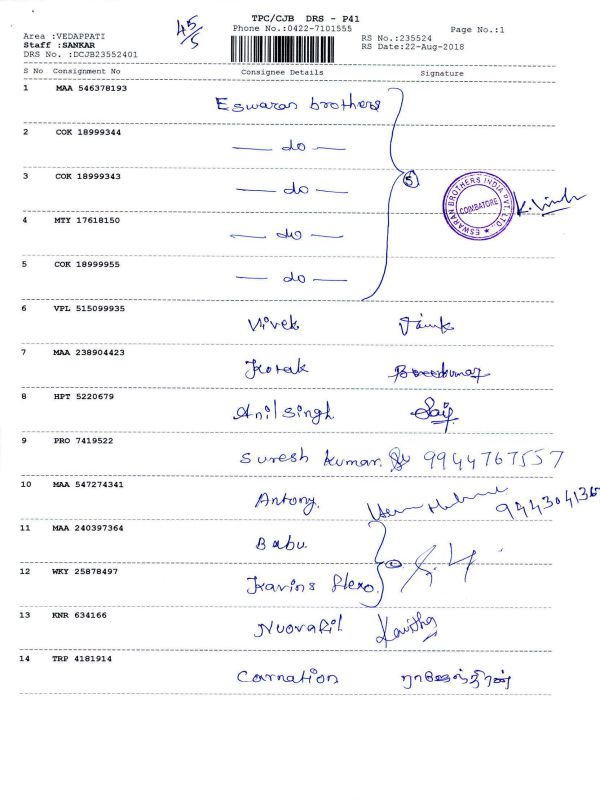 45/5
TPC/CJB DRS - P41
Phone No.:0422-7101555
Page No.:1
Area :VEDAPPATI
RS No.:235524
Staff :SANKAR
RS Date:22-Aug-2018
DRS No. :DCJB23552401
S No Consignment No Consignee Details Signature
1 MAA 546378193 Eswaran brothers
2 COK 18999344 — do —
3 COK 18999343 — do —
5
ESWARAN BROTHERS INDIA PVT. LTD., COIMBATORE
4 MTY 17618150 — do —
5 COK 18999955 — do —
6 VPL 515099935 Vivek
7 MAA 238904423 Kotak
8 HPT 5220679 Anil Singh
9 PRO 7419522 Suresh kumar. 9944767557
10 MAA 547274341 Antony.
11 MAA 240397364 Babu.
12 WKY 25878497
13 KNR 634166 Kavitha
14 TRP 4181914 Carnation